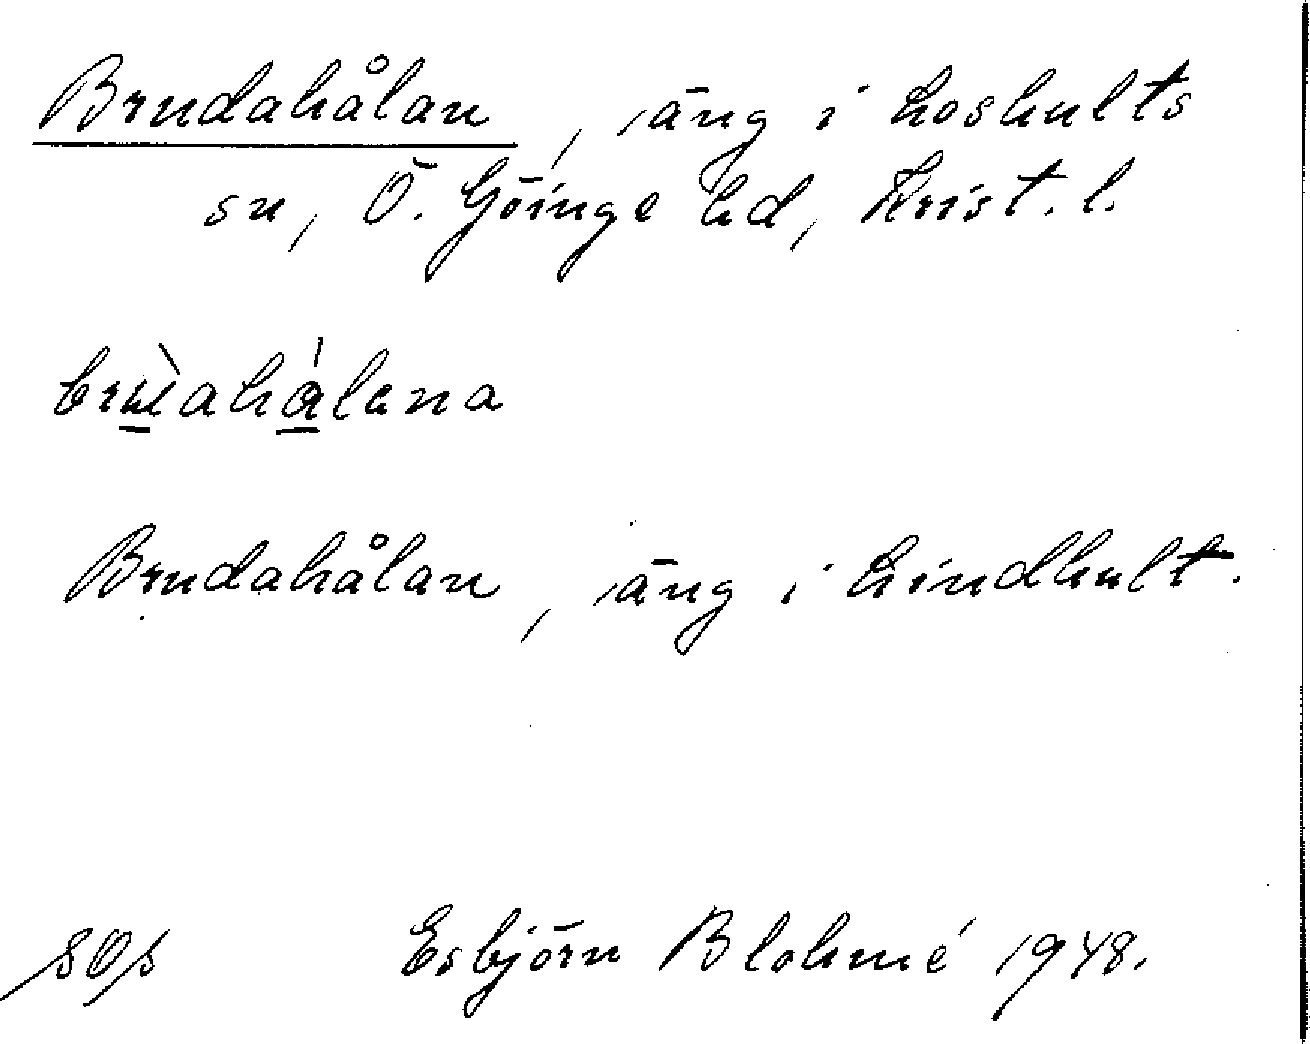 Brudahålan, äng i Loshults
sn, Ö. Göinge hd, Krist. l.
Brudahålan, äng i Lindhult.
Esbjörn Blohmé 1948.